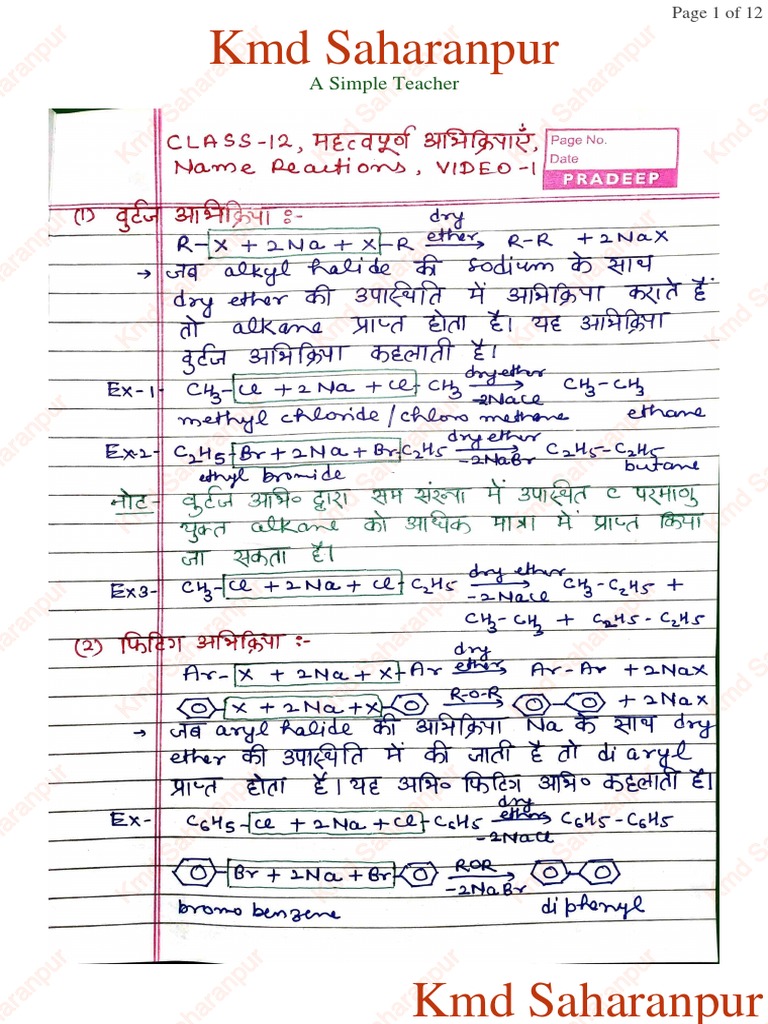 Page 1 of 12
Kmd Saharanpur
A Simple Teacher
CLASS-12, महत्वपूर्ण अभिक्रियाएँ,
Name Reactions, VIDEO-1
Page No.
Date
PRADEEP
(1) वुर्टज अभिक्रिया :-
R-X + 2Na + X-R dry ether → R-R + 2NaX
→ जब alkyl halide की sodium के साथ
dry ether की उपस्थिति में अभिक्रिया कराते हैं
तो alkane प्राप्त होता है। यह अभिक्रिया
वुर्टज अभिक्रिया कहलाती है।
Ex-1- CH3-Cl + 2Na + Cl-CH3 dry ether → -2NaCl CH3-CH3
methyl chloride / chloro methane ethane
Ex-2- C2H5-Br + 2Na + Br-C2H5 dry ether → -2NaBr C2H5-C2H5
ethyl bromide butane
नोट- वुर्टज अभि० द्वारा सम संख्या में उपस्थित C परमाणु
युक्त alkane को अधिक मात्रा में प्राप्त किया
जा सकता है।
Ex3- CH3-Cl + 2Na + Cl-C2H5 dry ether → -2NaCl CH3-C2H5 +
CH3-CH3 + C2H5-C2H5
(2) फिटिग अभिक्रिया :-
Ar-X + 2Na + X-Ar dry ether → Ar-Ar + 2NaX
X + 2Na + X R-O-R → + 2NaX
→ जब aryl halide की अभिक्रिया Na के साथ dry
ether की उपस्थिति में की जाती है तो di aryl
प्राप्त होता है। यह अभि० फिटिग अभि० कहलाती है।
Ex- C6H5-Cl + 2Na + Cl-C6H5 dry ether → -2NaCl C6H5-C6H5
Br + 2Na + Br ROR → -2NaBr
bromo benzene diphenyl
Kmd Saharanpur